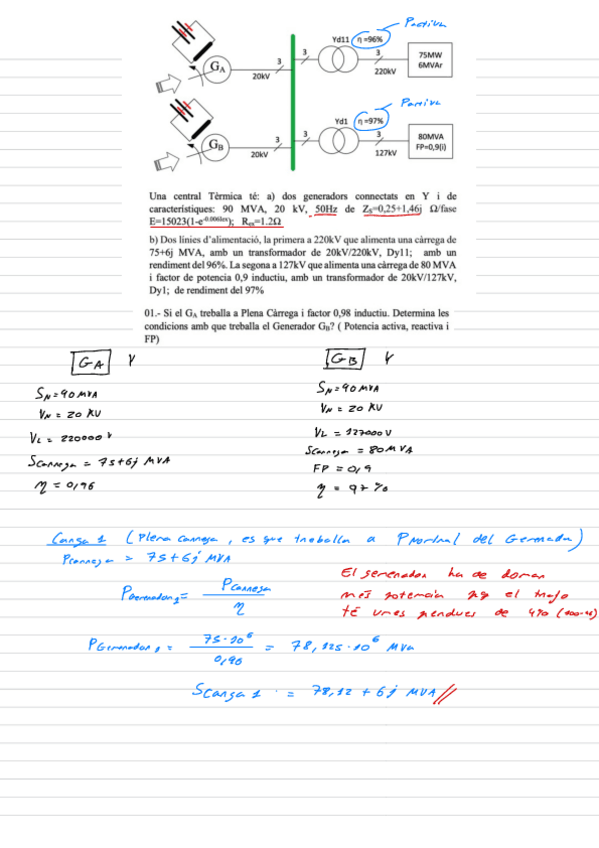 Pactiva
Yd11 η =96%
3
3
3
75MW
6MVAr
GA
20kV
220kV
Pactiva
Yd1 η =97%
3
3
3
80MVA
FP=0,9(i)
GB
20kV
127kV
Una central Tèrmica té: a) dos generadors connectats en Y i de
característiques: 90 MVA, 20 kV, 50Hz de ZS=0,25+1,46j Ω/fase
E=15023(1-e-0.006Iex); Rex=1.2Ω
b) Dos línies d'alimentació, la primera a 220kV que alimenta una càrrega de
75+6j MVA, amb un transformador de 20kV/220kV, Dy11; amb un
rendiment del 96%. La segona a 127kV que alimenta una càrrega de 80 MVA
i factor de potencia 0,9 inductiu, amb un transformador de 20kV/127kV,
Dy1; de rendiment del 97%
01.- Si el GA treballa a Plena Càrrega i factor 0,98 inductiu. Determina les
condicions amb que treballa el Generador GB? ( Potencia activa, reactiva i
FP)
GA Y
SN=90MVA
VN = 20 KV
VL = 220000 V
Scarrega = 75+6j MVA
η = 0,96
GB Y
SN=90MVA
VN = 20 KV
VL = 127000V
Scarrega = 80MVA
FP = 0,9
η = 97 %
Carga 1 (Plena carrega, es que treballa a Pnominal del Generador)
Pcarrega = 75+6j MVA
Pgenerador1= Pcarrega / η
El generador ha de donar
més potencia pq el trafo
té unes perdues de 4% (100-96)
PGenerador1 = 75·10^6 / 0,96 = 78,125·10^6 MVA
Scarga 1 = 78,12 + 6j MVA//